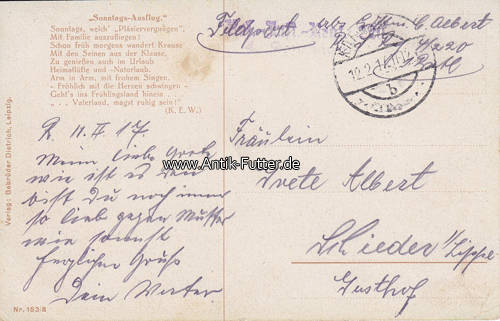 „Sonntags-Ausflug."
Sonntags, welch' „Pläsiervergnügen",
Mit Familie auszufliegen!
Schon früh morgens wandert Krause
Mit den Seinen aus der Klause,
Zu genießen auch im Urlaub
Heimatlüfte und -Naturlaub.
Arm in Arm, mit frohem Singen,
- Fröhlich mit die Herzen schwingen -
Geht's ins Frühlingsland hinein . . .
„. . . Vaterland, magst ruhig sein!"
(K. E. W.)
Feldpost Abs. C. Albert
12.2.
b
R. 11. II. 17.
Meine liebe Grete
wie ist es denn
bist du noch immer
so lieb gegen Mutter
wie sonst
herzlichen Gruß
Dein Vater
Fräulein
Grete Albert
Schieder i/Lippe
Gasthof
www.Antik-Futter.de
Verlag: Gebrüder Dietrich, Leipzig.
Nr. 153/8